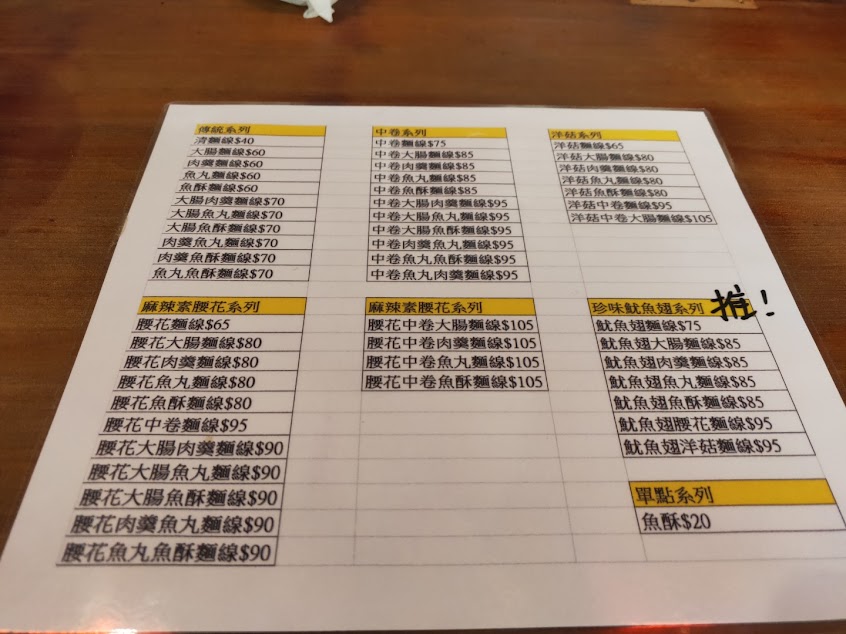 傳統系列
清麵線$40
大腸麵線$60
肉羹麵線$60
魚丸麵線$60
魚酥麵線$60
大腸肉羹麵線$70
大腸魚丸麵線$70
大腸魚酥麵線$70
肉羹魚丸麵線$70
肉羹魚酥麵線$70
魚丸魚酥麵線$70
中卷系列
中卷麵線$75
中卷大腸麵線$85
中卷肉羹麵線$85
中卷魚丸麵線$85
中卷魚酥麵線$85
中卷大腸肉羹麵線$95
中卷大腸魚丸麵線$95
中卷大腸魚酥麵線$95
中卷肉羹魚丸麵線$95
中卷魚丸魚酥麵線$95
中卷魚丸肉羹麵線$95
洋菇系列
洋菇麵線$65
洋菇大腸麵線$80
洋菇肉羹麵線$80
洋菇魚丸麵線$80
洋菇魚酥麵線$80
洋菇中卷麵線$95
洋菇中卷大腸麵線$105
麻辣素腰花系列
腰花麵線$65
腰花大腸麵線$80
腰花肉羹麵線$80
腰花魚丸麵線$80
腰花魚酥麵線$80
腰花中卷麵線$95
腰花大腸肉羹麵線$90
腰花大腸魚丸麵線$90
腰花大腸魚酥麵線$90
腰花肉羹魚丸麵線$90
腰花魚丸魚酥麵線$90
麻辣素腰花系列
腰花中卷大腸麵線$105
腰花中卷肉羹麵線$105
腰花中卷魚丸麵線$105
腰花中卷魚酥麵線$105
珍味魷魚翅系列 推!
魷魚翅麵線$75
魷魚翅大腸麵線$85
魷魚翅肉羹麵線$85
魷魚翅魚丸麵線$85
魷魚翅魚酥麵線$85
魷魚翅腰花麵線$95
魷魚翅洋菇麵線$95
單點系列
魚酥$20